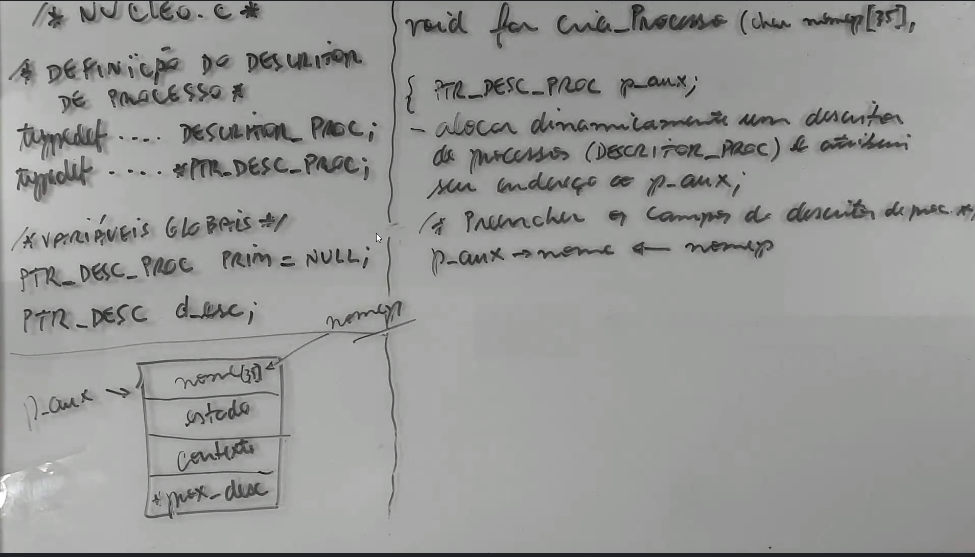 /* NUCLEO.C *
/* DEFINIÇÃO DO DESCRITOR
DE PROCESSO *
typedef .... DESCRITOR_PROC;
typedef .... *PTR_DESC_PROC;
/* VARIÁVEIS GLOBAIS */
PTR_DESC_PROC PRIM = NULL;
PTR_DESC d_esc;
p_aux
nome[35]
estado
contexto
*prox_desc
nomep
void far cria_Processo (char nomep[35],
{ PTR_DESC_PROC p_aux;
- alocar dinamicamente um descritor
de processos (DESCRITOR_PROC) e atribuir
seu endereço a p_aux;
/* Preencher os campos do descritor de proc. */
p_aux→nome ← nomep